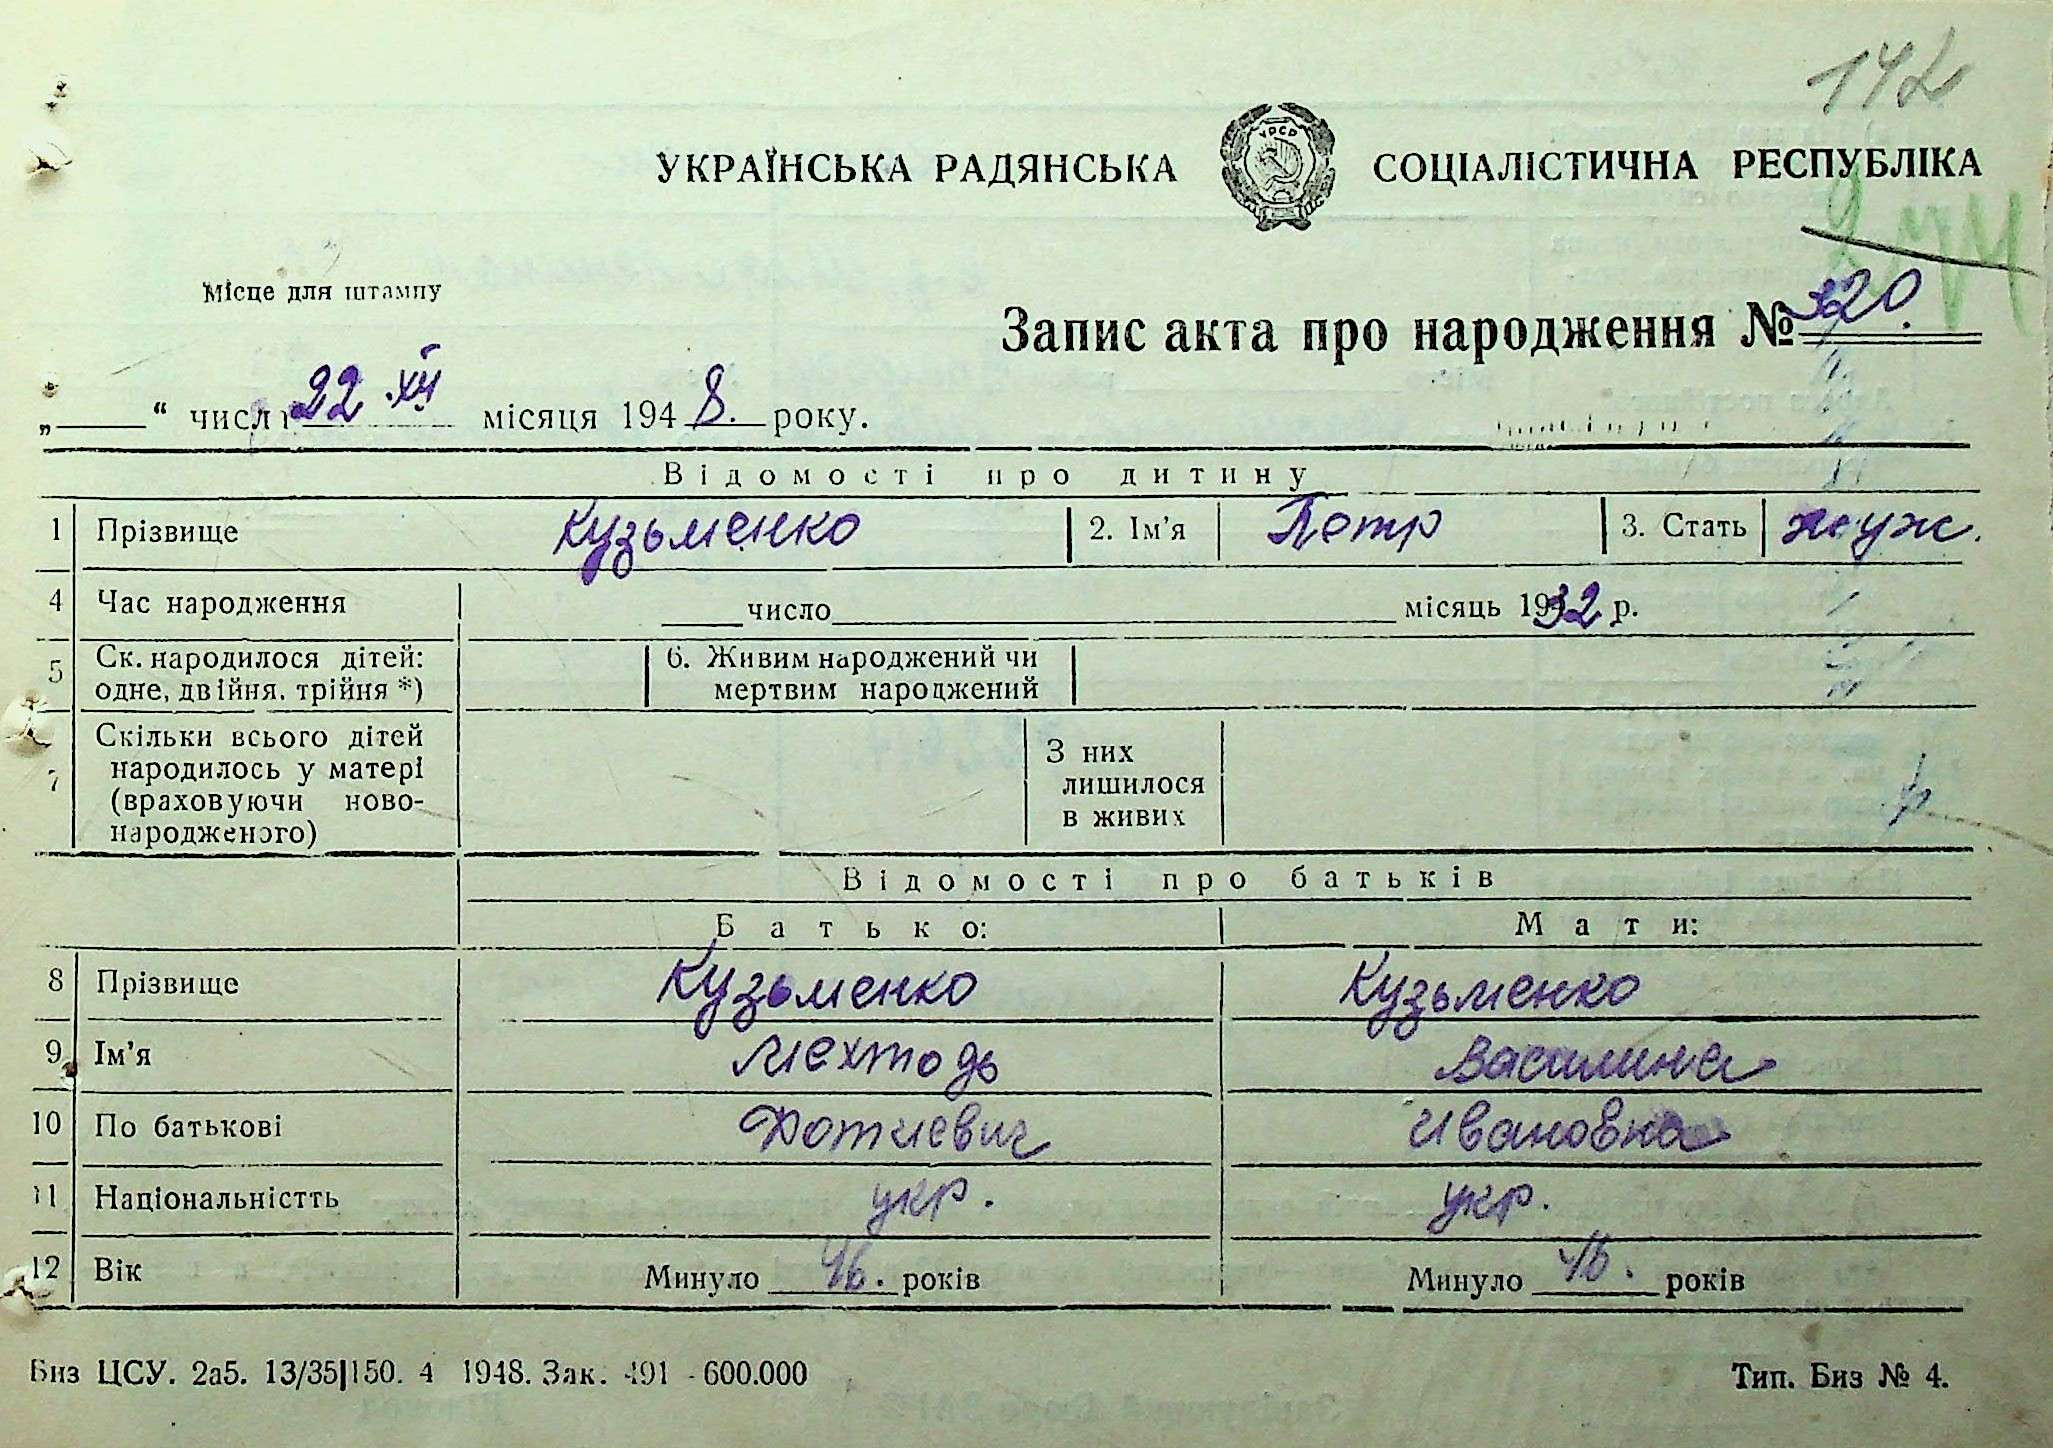 142
УКРАЇНСЬКА РАДЯНСЬКА УРСР СОЦІАЛІСТИЧНА РЕСПУБЛІКА
Місце для штампу
Запис акта про народження № 320.
„ “ числа 22 XII місяця 194 8. року.
Відомості про дитину
1 Прізвище Кузьменко 2. Ім'я Петр 3. Стать муж.
4 Час народження число місяць 1932 р.
5 Ск. народилося дітей: одне, двійня, трійня *) 6. Живим народжений чи мертвим народжений
7 Скільки всього дітей народилось у матері (враховуючи ново-народженого) З них лишилося в живих
Відомості про батьків
Батько: Мати:
8 Прізвище Кузьменко Кузьменко
9 Ім'я Мехтодь Василина
10 По батькові Ивановна
11 Національністть укр. укр.
12 Вік Минуло 46. років Минуло 46. років
Биз ЦСУ. 2а5. 13/35|150. 4 1948. Зак. 491 - 600.000 Тип. Биз № 4.